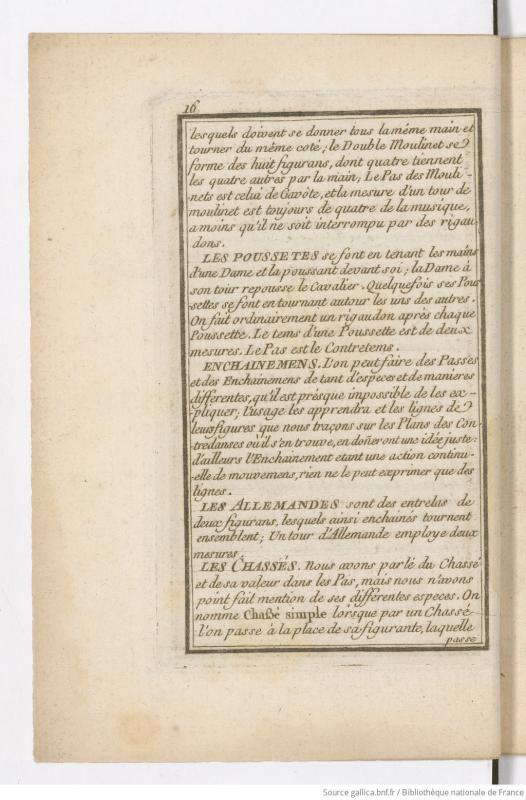 16
lesquels doivent se donner tous la même main et
tourner du même coté; le Double Moulinet se
forme des huit figurans, dont quatre tiennent
les quatre autres par la main; Le Pas des Mouli-
nets est celui de Gavote, et la mesure d'un tour de
moulinet est toujours de quatre de la musique,
a moins qu'il ne soit interrompu par des rigau-
dons.
LES POUSSETES se font en tenant les mains
d'une Dame et la poussant devant soi; la Dame à
son tour repousse le Cavalier. Quelquefois ses Pous
settes se font en tournant autour les uns des autres.
On fait ordinairement un rigaudon après chaque
Poussette. Le tems d'une Poussette est de deux
mesures. Le Pas est le Contretems.
ENCHAINEMENS. L'on peut faire des Passes
et des Enchainemens de tant d'especes et de manieres
différentes, qu'il est présque impossible de les ex-
pliquer; l'usage les apprendra et les lignes de
leurs figures que nous traçons sur les Plans des Con
tredanses où il s'en trouve, en doñeront une idée juste:
d'ailleurs l'Enchainement etant une action continu-
elle de mouvemens, rien ne le peut exprimer que des
lignes.
LES ALLEMANDES sont des entrelas de
deux figurans, lesquels ainsi enchainés tournent
ensemblent; Un tour d'Allemande employe deux
mesures.
LES CHASSÉS. Nous avons parlé du Chassé
et de sa valeur dans les Pas, mais nous n'avons
point fait mention de ses différentes especes. On
nomme Chaßé simple lorsque par un Chassé
l'on passe à la place de sa figurante, laquelle
passe
Source gallica.bnf.fr / Bibliothèque nationale de France